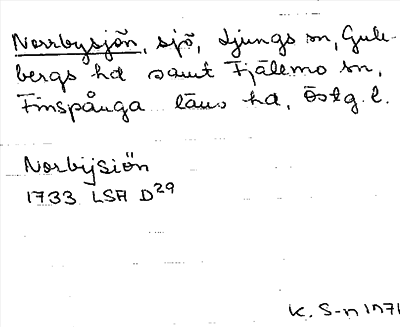 Norrbysjön, sjö, Ljungs sn, Gull-
bergs hd samt Fjälemo sn,
Finspånga läns hd, Östg. l.
Norbijsiön
1733 LSA D29
K. S-n 1971